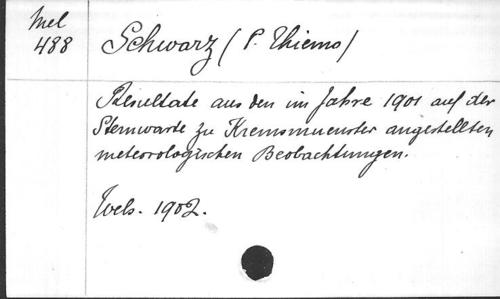 Mel
488
Schwarz (P. Thiemo)
Resultate aus den im Jahre 1901 auf der
Sternwarte zu Kremsmuenster angestellten
meteorologischen Beobachtungen.
Wels. 1902.